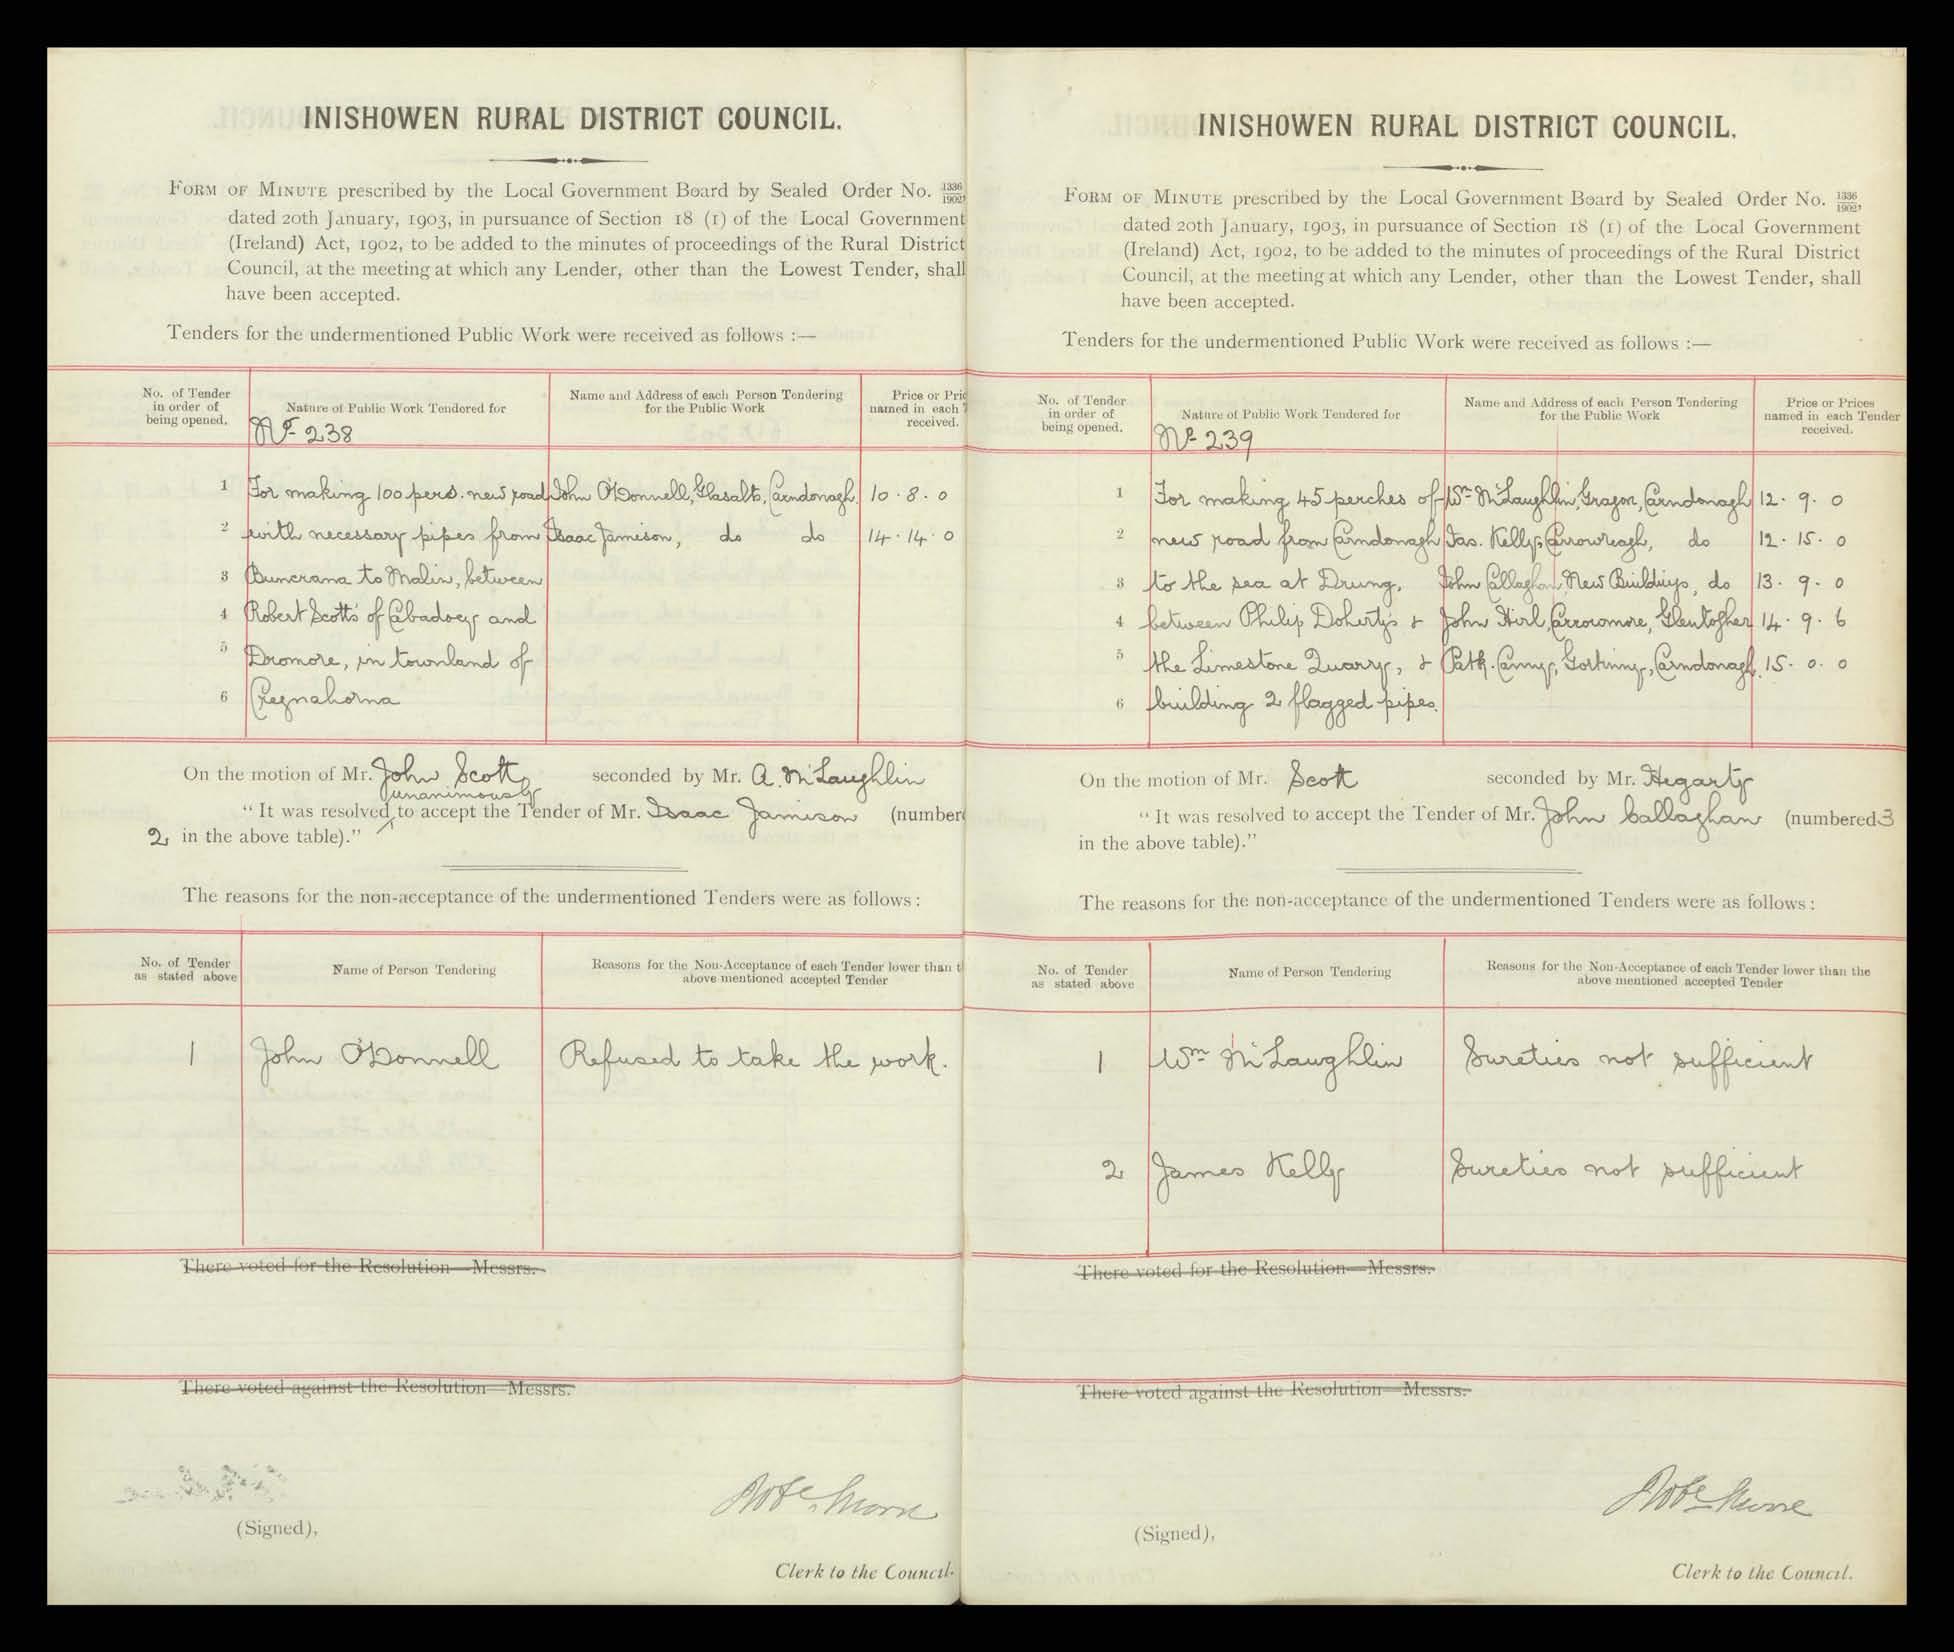 INISHOWEN RURAL DISTRICT COUNCIL.
FORM OF MINUTE prescribed by the Local Government Board by Sealed Order No. 1336/1902,
dated 20th January, 1903, in pursuance of Section 18 (1) of the Local Government
(Ireland) Act, 1902, to be added to the minutes of proceedings of the Rural District
Council, at the meeting at which any Lender, other than the Lowest Tender, shall
have been accepted.
Tenders for the undermentioned Public Work were received as follows :—
No. of Tender in order of being opened.
Nature of Public Work Tendered for
No 238
Name and Address of each Person Tendering for the Public Work
Price or Pric
named in each
received.
1 For making 100 pers. new road John O'Donnell, Glasalts, Carndonagh. 10 . 8 . 0
2 with necessary pipes from Isaac Jamison, do do 14 . 14 . 0
3 Buncrana to Malin, between
4 Robert Scott's of Cabadooey and
5 Dromore, in townland of
6 Cregnahorna
On the motion of Mr. John Scott, seconded by Mr. A. McLaughlin
unanimously
"It was resolved to accept the Tender of Mr. Isaac Jamison (number
2 in the above table)."
The reasons for the non-acceptance of the undermentioned Tenders were as follows :
No. of Tender as stated above
Name of Person Tendering
Reasons for the Non-Acceptance of each Tender lower than t
above mentioned accepted Tender
1 John O'Donnell Refused to take the work.
There voted for the Resolution—Messrs.
There voted against the Resolution—Messrs.
(Signed),
Clerk to the Council.
INISHOWEN RURAL DISTRICT COUNCIL.
FORM OF MINUTE prescribed by the Local Government Board by Sealed Order No. 1336/1902,
dated 20th January, 1903, in pursuance of Section 18 (1) of the Local Government
(Ireland) Act, 1902, to be added to the minutes of proceedings of the Rural District
Council, at the meeting at which any Lender, other than the Lowest Tender, shall
have been accepted.
Tenders for the undermentioned Public Work were received as follows :—
No. of Tender in order of being opened.
Nature of Public Work Tendered for
No 239
Name and Address of each Person Tendering for the Public Work
Price or Prices
named in each Tender
received.
1 For making 45 perches of Wm McLaughlin, Gragon, Carndonagh 12 . 9 . 0
2 new road from Carndonagh Jas. Kelly, Carrowreagh, do 12 . 15 . 0
3 to the sea at Drung, John Callaghan, New Buildings, do 13 . 9 . 0
4 between Philip Doherty's & John Hirl, Carrowmore, Glentogher 14 . 9 . 6
5 the Limestone Quarry, & Patk. Canny, Gortinny, Carndonagh. 15 . 0 . 0
6 building 2 flagged pipes.
On the motion of Mr. Scott seconded by Mr. Hegarty
"It was resolved to accept the Tender of Mr. John Callaghan (numbered 3
in the above table)."
The reasons for the non-acceptance of the undermentioned Tenders were as follows :
No. of Tender as stated above
Name of Person Tendering
Reasons for the Non-Acceptance of each Tender lower than the
above mentioned accepted Tender
1 Wm McLaughlin Sureties not sufficient
2 James Kelly Sureties not sufficient
There voted for the Resolution—Messrs.
There voted against the Resolution—Messrs.
(Signed),
Clerk to the Council.